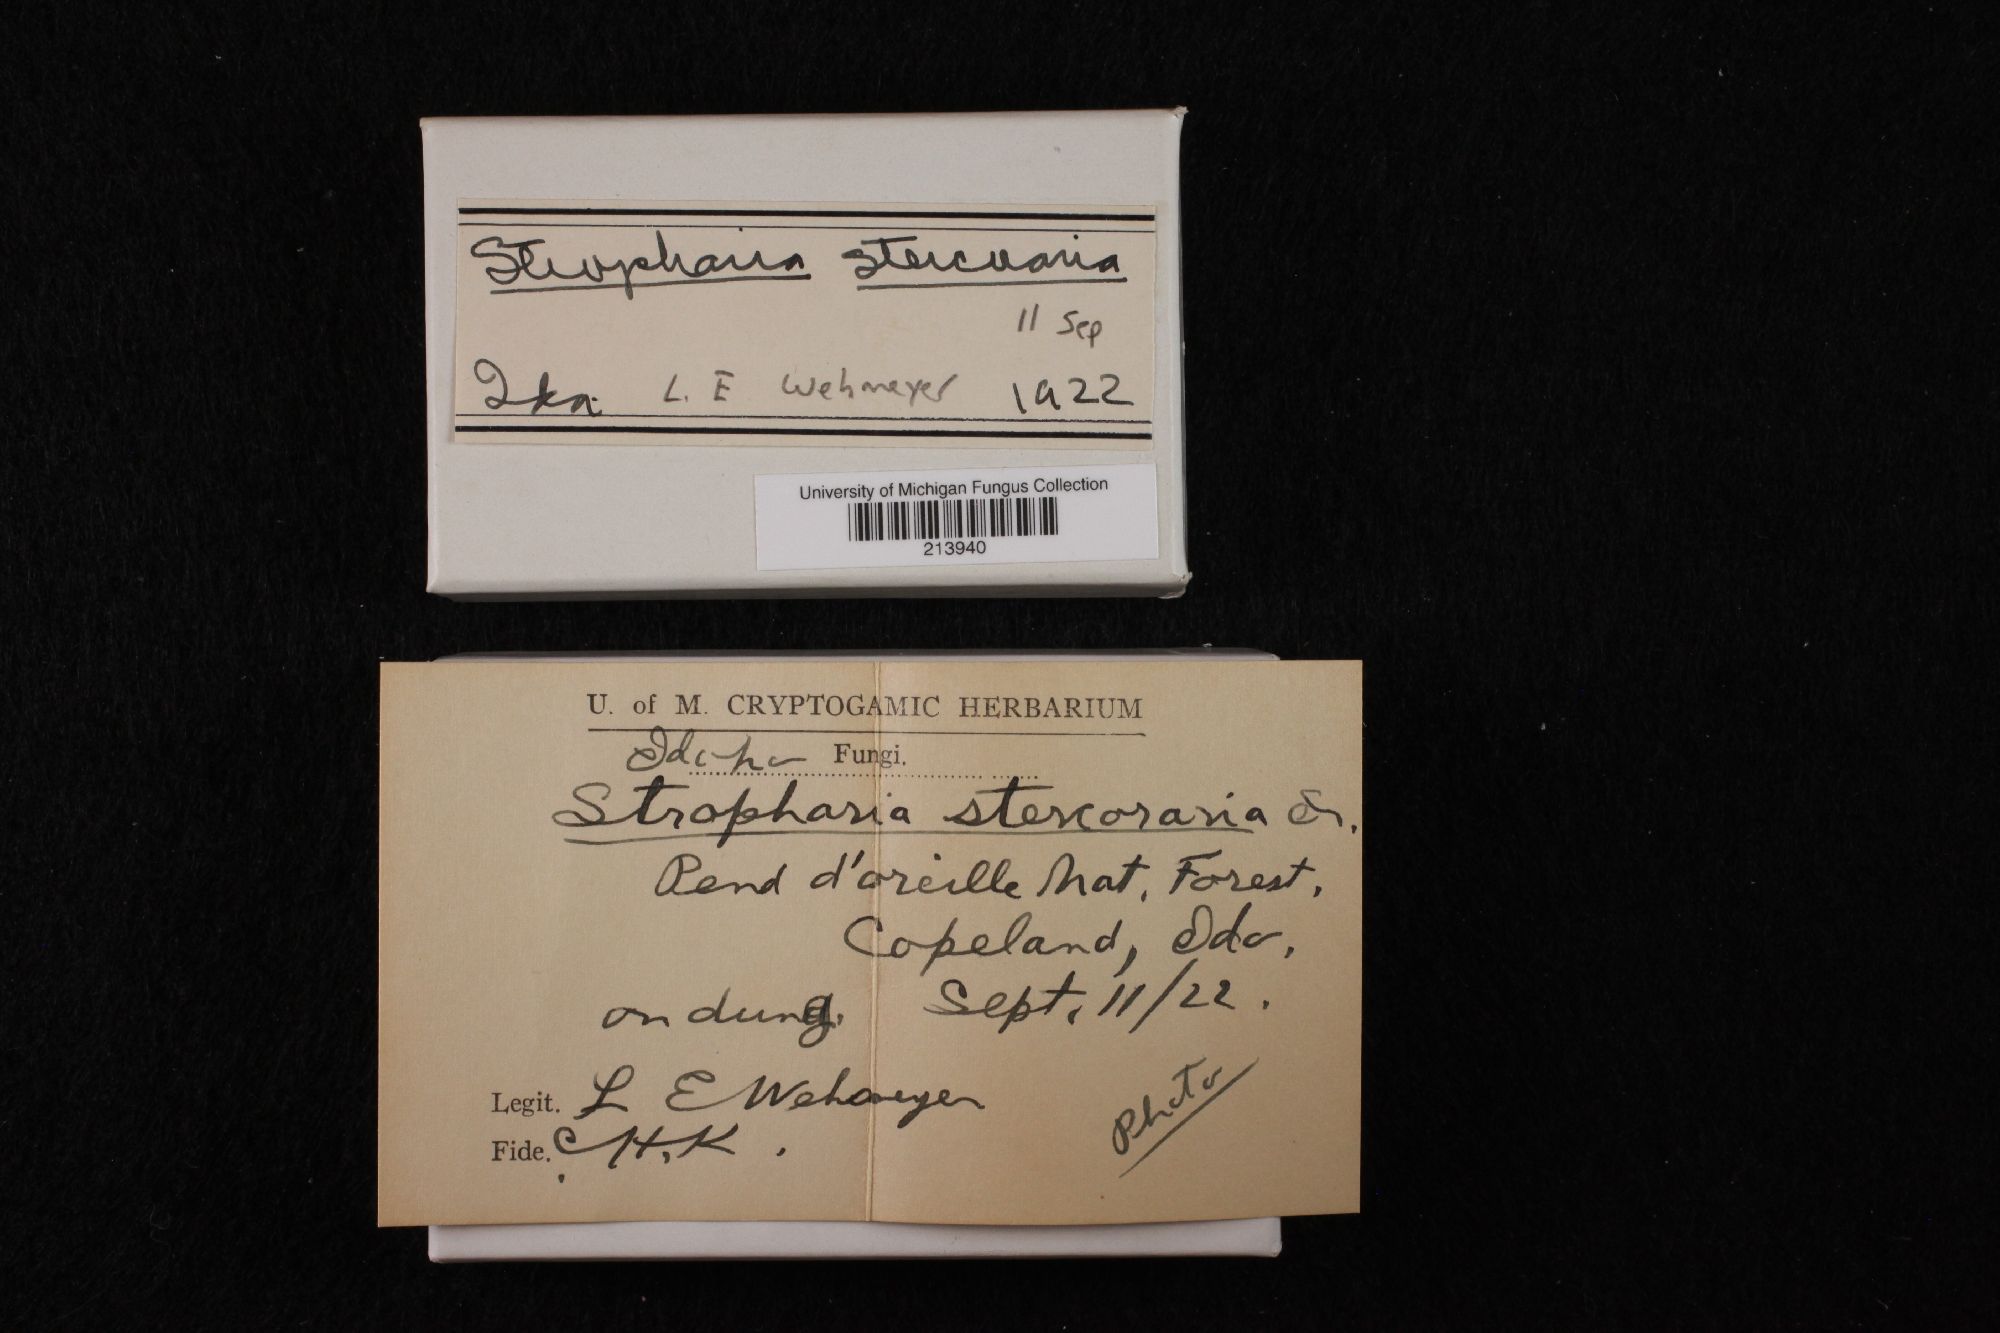 Stropharia stercoraria
11 Sep
Ida. L. E Wehmeyer 1922
University of Michigan Fungus Collection
213940
U. of M. CRYPTOGAMIC HERBARIUM
Idaho Fungi.
Stropharia stercoraria Fr.
Pend d'oreille Nat. Forest.
Copeland, Ida.
on dung. Sept. 11/22.
Legit. L E Wehmeyer
Photo
Fide. C.H.K.